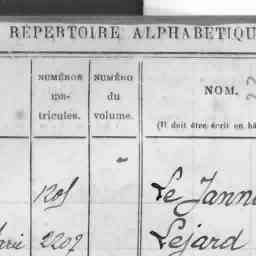 RÉPERTOIRE ALPHABÉTIQU
NUMÉROS
ma-
tricules.
NUMÉRO
du
volume.
NOM.
(Il doit être écrit en bâ
1205
Le Jann
arie
2207
Lejard